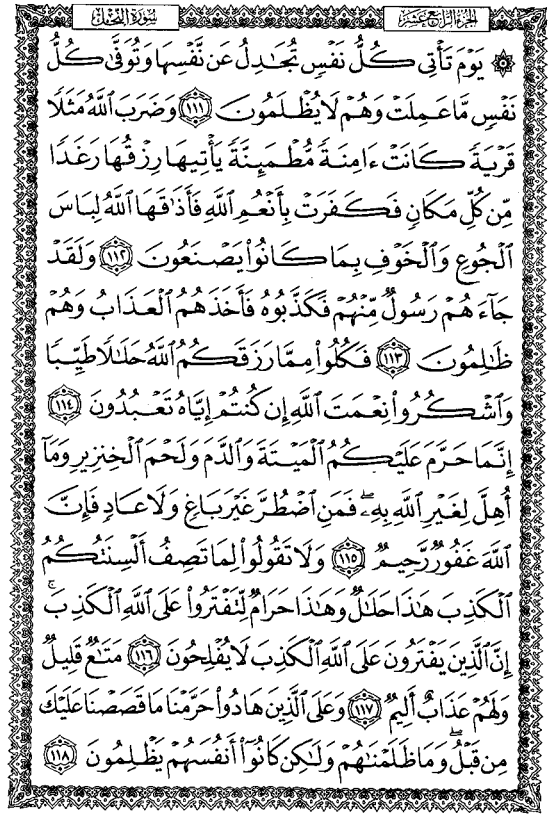 سُورَةُ النَّحْلِ
الجُزْءُ الرَّابِعَ عَشَرَ
۞ يَوْمَ تَأْتِي كُلُّ نَفْسٍ تُجَٰدِلُ عَن نَّفْسِهَا وَتُوَفَّىٰ كُلُّ
نَفْسٍ مَّا عَمِلَتْ وَهُمْ لَا يُظْلَمُونَ ١١١ وَضَرَبَ ٱللَّهُ مَثَلًا
قَرْيَةً كَانَتْ ءَامِنَةً مُّطْمَئِنَّةً يَأْتِيهَا رِزْقُهَا رَغَدًا
مِّن كُلِّ مَكَانٍ فَكَفَرَتْ بِأَنْعُمِ ٱللَّهِ فَأَذَٰقَهَا ٱللَّهُ لِبَاسَ
ٱلْجُوعِ وَٱلْخَوْفِ بِمَا كَانُوا۟ يَصْنَعُونَ ١١٢ وَلَقَدْ
جَآءَهُمْ رَسُولٌ مِّنْهُمْ فَكَذَّبُوهُ فَأَخَذَهُمُ ٱلْعَذَابُ وَهُمْ
ظَٰلِمُونَ ١١٣ فَكُلُوا۟ مِمَّا رَزَقَكُمُ ٱللَّهُ حَلَٰلًا طَيِّبًا
وَٱشْكُرُوا۟ نِعْمَتَ ٱللَّهِ إِن كُنتُمْ إِيَّاهُ تَعْبُدُونَ ١١٤
إِنَّمَا حَرَّمَ عَلَيْكُمُ ٱلْمَيْتَةَ وَٱلدَّمَ وَلَحْمَ ٱلْخِنزِيرِ وَمَآ
أُهِلَّ لِغَيْرِ ٱللَّهِ بِهِۦۖ فَمَنِ ٱضْطُرَّ غَيْرَ بَاغٍ وَلَا عَادٍ فَإِنَّ
ٱللَّهَ غَفُورٌ رَّحِيمٌ ١١٥ وَلَا تَقُولُوا۟ لِمَا تَصِفُ أَلْسِنَتُكُمُ
ٱلْكَذِبَ هَٰذَا حَلَٰلٌ وَهَٰذَا حَرَامٌ لِّتَفْتَرُوا۟ عَلَى ٱللَّهِ ٱلْكَذِبَۚ
إِنَّ ٱلَّذِينَ يَفْتَرُونَ عَلَى ٱللَّهِ ٱلْكَذِبَ لَا يُفْلِحُونَ ١١٦ مَتَٰعٌ قَلِيلٌ
وَلَهُمْ عَذَابٌ أَلِيمٌ ١١٧ وَعَلَى ٱلَّذِينَ هَادُوا۟ حَرَّمْنَا مَا قَصَصْنَا عَلَيْكَ
مِن قَبْلُۖ وَمَا ظَلَمْنَٰهُمْ وَلَٰكِن كَانُوٓا۟ أَنفُسَهُمْ يَظْلِمُونَ ١١٨